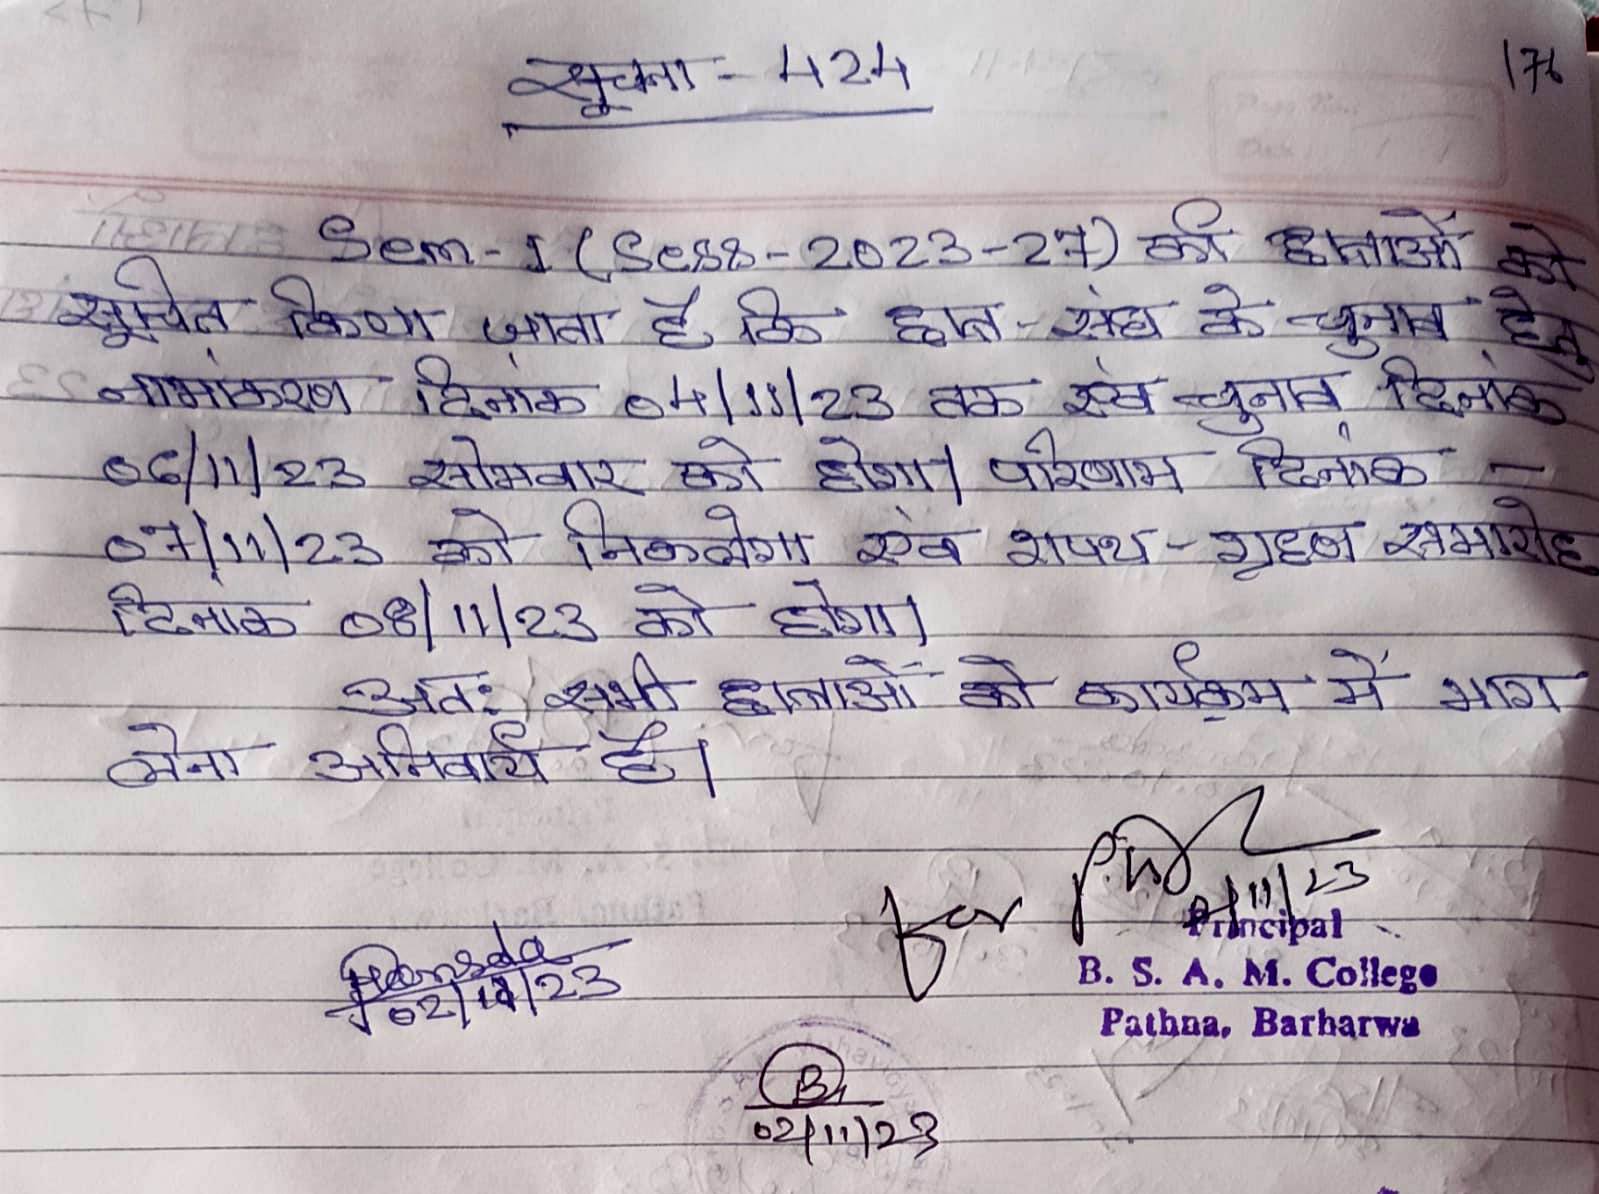 सूचना - 424
176
Sem-I (Sess-2023-27) की छात्राओं को
सूचित किया जाता है कि छात्र-संघ के चुनाव हेतु
नामांकरण दिनांक 04/11/23 तक एवं चुनाव दिनांक
06/11/23 सोमवार को होगा। परिणाम दिनांक -
07/11/23 को निकलेगा एंव शपथ-ग्रहण समारोह
दिनांक 08/11/23 को होगा।
अतः सभी छात्राओं को कार्यक्रम में भाग
लेना अनिवार्य है।
for
2/11/23
Principal
B. S. A. M. College
Pathna, Barharwa
Hansda
02/11/23
02/11/23